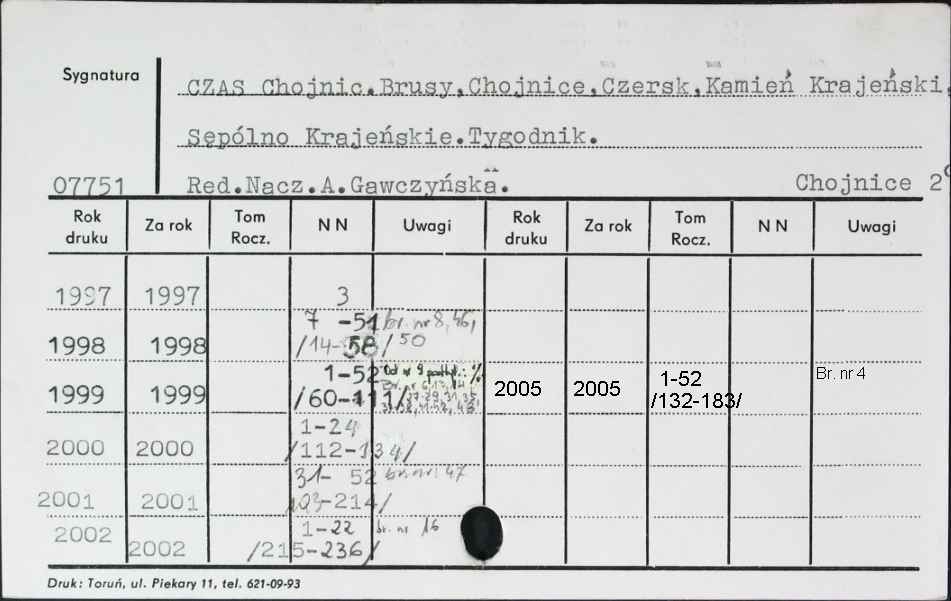 Sygnatura
CZAS Chojnic.Brusy,Chojnice,Czersk,Kamień Krajeński,
Sępólno Krajeńskie.Tygodnik.
07751 Red.Nacz.A.Gawczyńska. Chojnice 2°
Rok druku Za rok Tom Rocz. NN Uwagi Rok druku Za rok Tom Rocz. NN Uwagi
1997 1997 3
7 -51 br. nr 8, 46,
1998 1998 /14-58/ 50
1-52 Od nr 9
1999 1999 /60-111/ 2005 2005 1-52 /132-183/ Br. nr 4
1-24
2000 2000 /112-134/
31- 52 br. nr 47
2001 2001 -214/
2002 1-22 br. nr 16
2002 /215-236/
Druk: Toruń, ul. Piekary 11, tel. 621-09-93